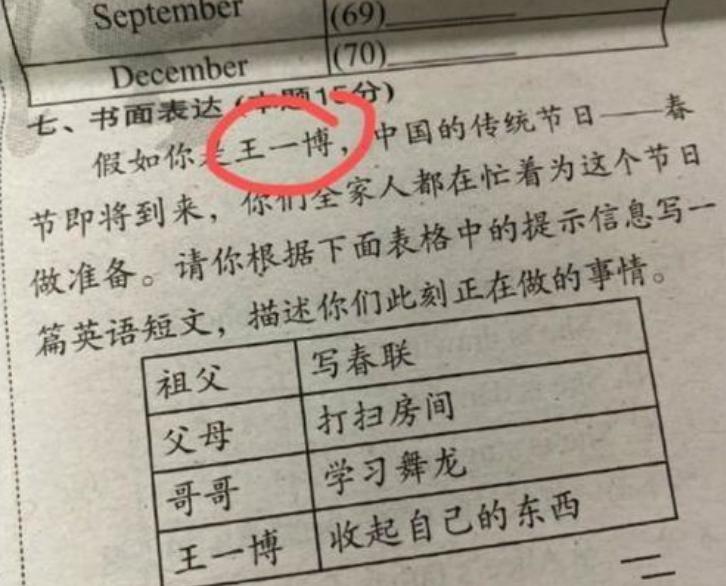 September (69)
December (70)
七、书面表达(本题15分)
假如你是王一博,中国的传统节日——春
节即将到来,你们全家人都在忙着为这个节日
做准备。请你根据下面表格中的提示信息写一
篇英语短文,描述你们此刻正在做的事情。
祖父 写春联
父母 打扫房间
哥哥 学习舞龙
王一博 收起自己的东西